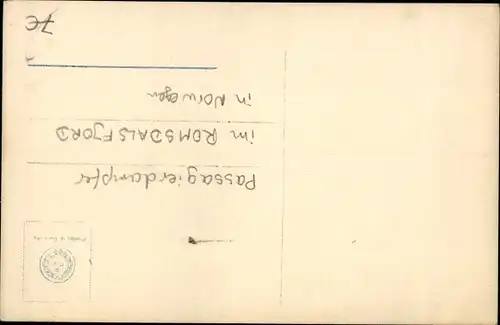 Passagierdampfer
im ROMSDALSFJORD
in Norwegen
7€